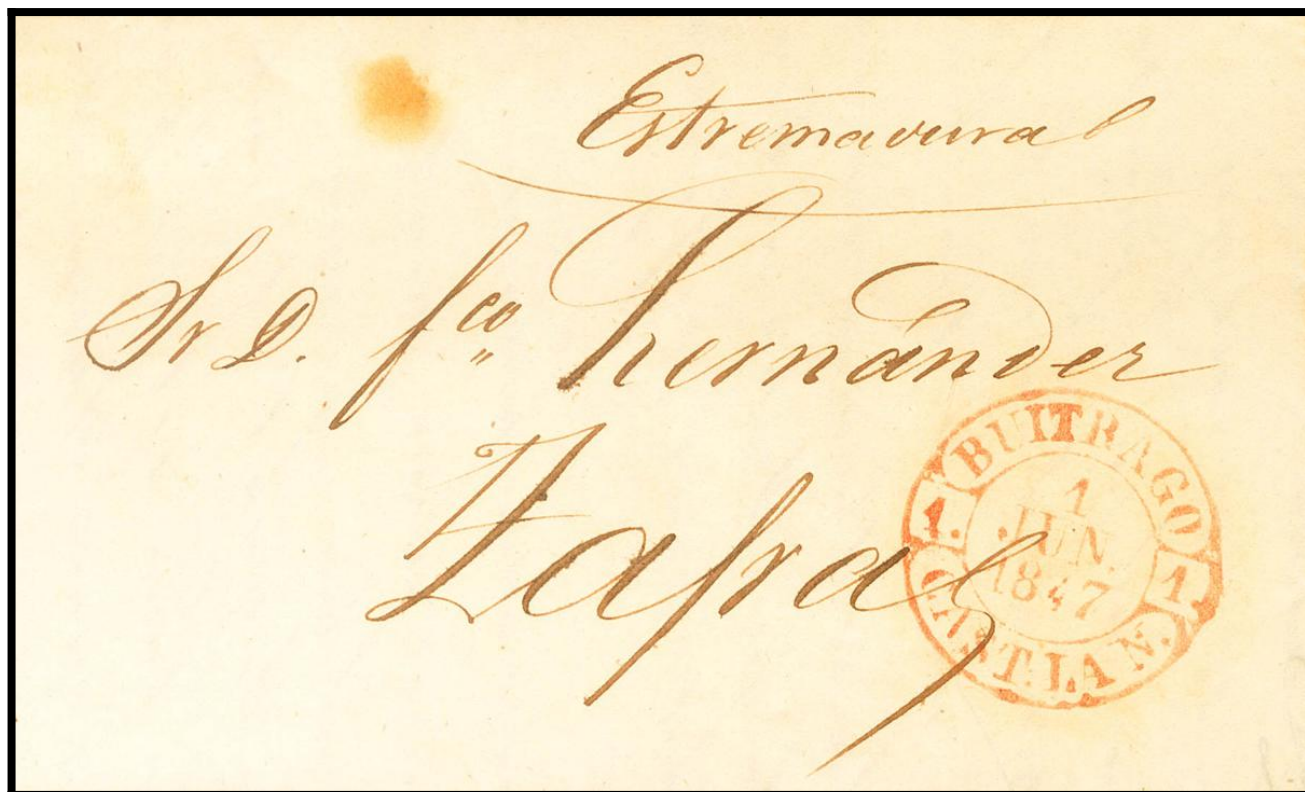 Estremadura
Sr D. fco hernández
Zafra
BUITRAGO
1. 1.
1
JUN.
1847
CAST. LA N.